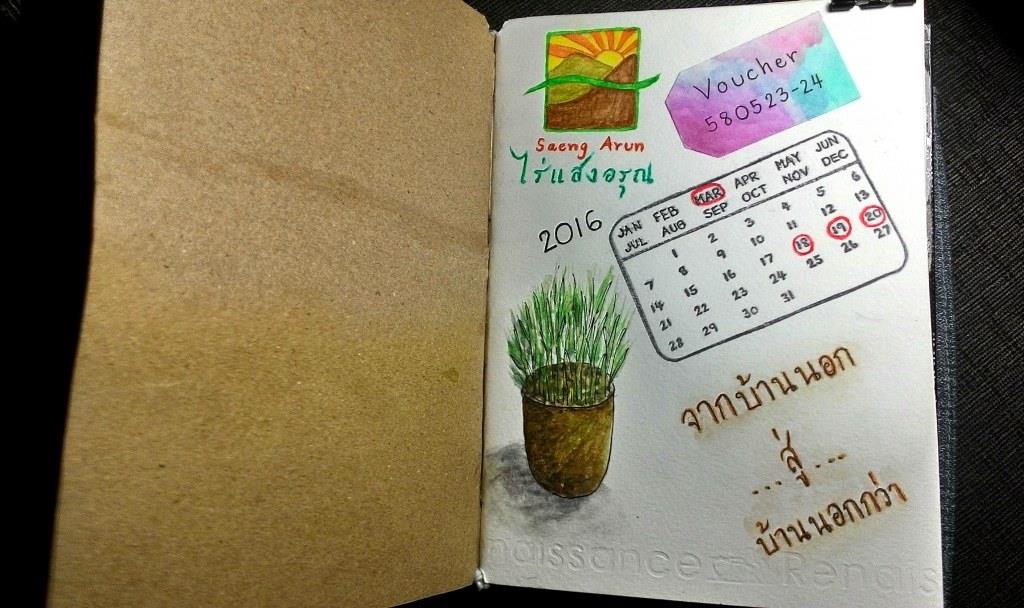 Saeng Arun
ไร่แสงอรุณ
Voucher
580523-24
2016
JAN FEB MAR APR MAY JUN
JUL AUB SEP OCT NOV DEC
1 2 3 4 5 6
7 8 9 10 11 12 13
14 15 16 17 18 19 20
21 22 23 24 25 26 27
28 29 30 31
จากบ้านนอก
...สู่...
บ้านนอกกว่า
naissance Renais